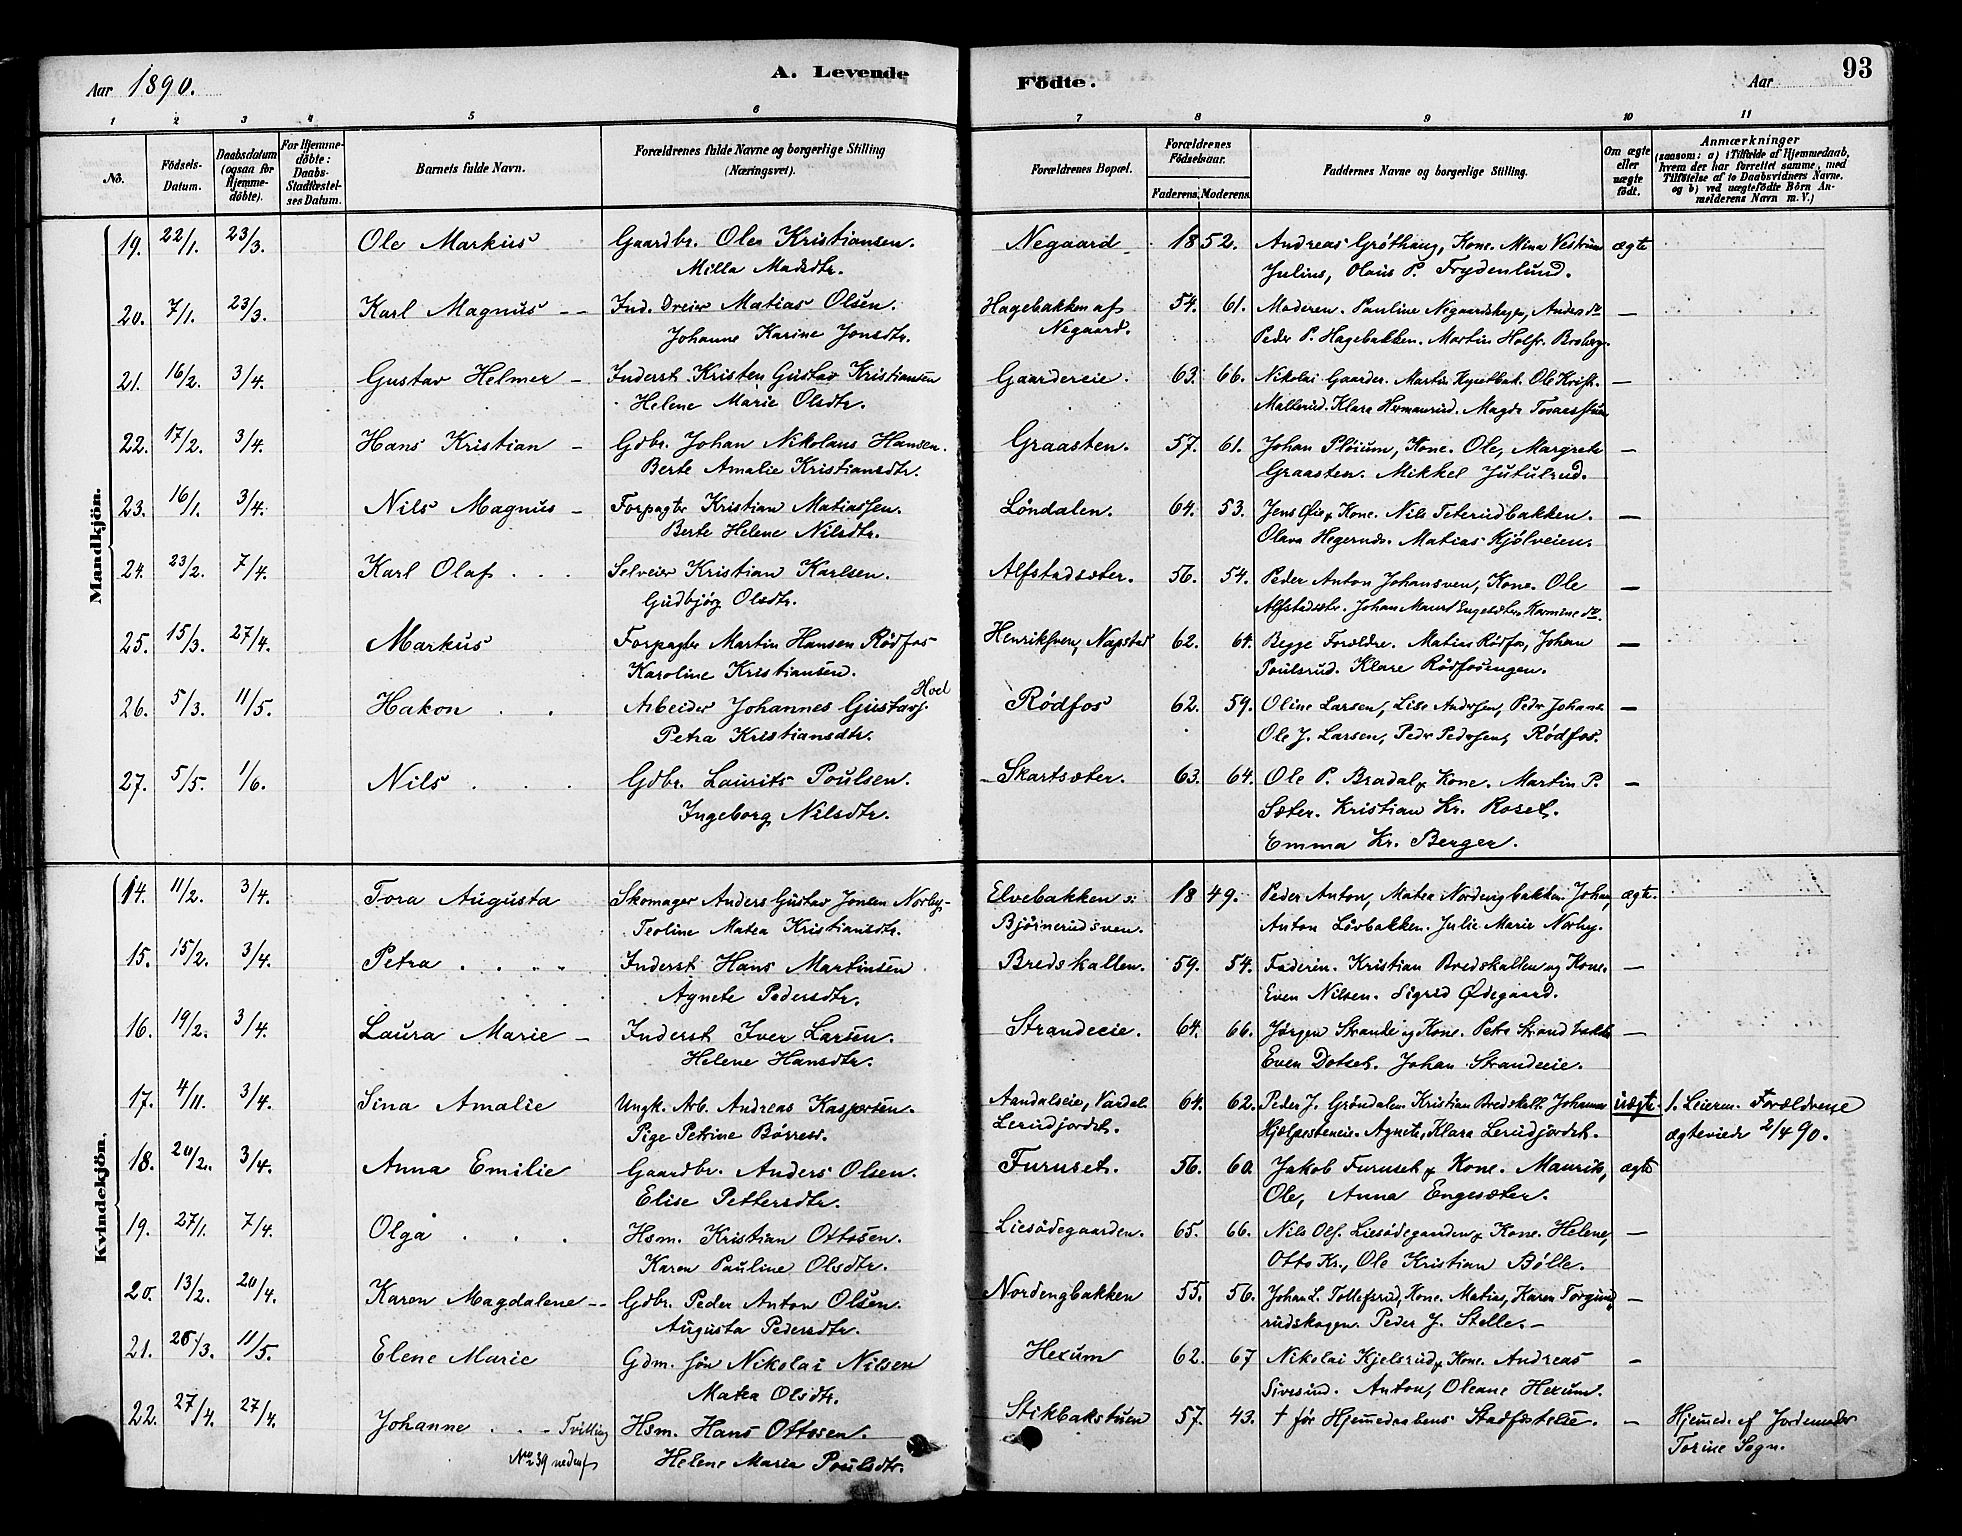 Aar 1890.
A. Levende
Födte.
Aar
93
1 2 3 4 5 6 7 8 9 10 11
No.
Födsels-Datum.
Daabsdatum (ogsaa for Hjemme-döbte).
For Hjemme-döbte: Daabs-Stadfæstel-ses Datum.
Barnets fulde Navn.
Forældrenes fulde Navne og borgerlige Stilling (Næringsvei).
Forældrenes Bopæl.
Forældrenes Födselsaar.
Faderens. Moderens.
Faddernes Navne og borgerlige Stilling.
Om ægte eller uægte födt.
Anmærkninger
(saasom: a) i Tilfælde af Hjemmedaab, hvem der har forrettet samme, med Tilföielse af to Daabsvidners Navne. og b) ved uægtefödte Börn An-melderens Navn m. V.)
Mandkjön.
19. 22/1. 23/3. Ole Markus Gaardbr. Ole Kristiansen. Negaard 18 52. Andreas Gröthaug, Kone. Mina ægte
Milla Madsdtr. Julius, Olaus P. Frydenlund.
20. 7/1. 23/3. Karl Magnus -- Ind. Dreier Matias Olsen. Hagebakken af 54. 61. Moderen. Pauline Anders do —
Johanne Karine Jonsdtr. Negaard. Peder P. Hagebakken. Martin Broberg.
21. 16/2. 3/4. Gustav Helmer - Inderst Kristen Gustav Kristiansen Gaardereie. 63. 66. Nikolai Gaarder. Martin Ole Krist. —
Helene Marie Olsdtr. Mallerud. Klara Hermanrud. Magda
22. 17/2. 3/4. Hans Kristian - Gdbr. Johan Nikolaus Hansen. Graasten. 57. 61. Johan Plöium, Kone. Ole, Margrete —
Berte Amalie Kristiansdtr. Graasten. Mikkel Jutulrud.
23. 16/1. 3/4. Nils Magnus - Forpagtr Kristian Matiassen. Löndalen. 64. 53. Jens Kone. Nils Teterudbakken. —
Berte Helene Nilsdtr. Olava Hegernds. Matias Kjölveien.
24. 23/2. 7/4. Karl Olaf . . . Selveier Kristian Karlsen. Alfstadsæter. 56. 54. Peder Anton Johansven, Kone. Ole —
Gudbjörg Olsdtr. Alfstadsætr. Johan Maurd Engesætr. Karmine do.
25. 15/3. 27/4. Markus Forpagtr Martin Hansen Rödfos Henriksven, Nagstad 62. 64. Begge Forældre. Matias Rödfos, Johan —
Karoline Kristiansen. Poulsrud. Klare Rödfosengen.
26. 5/3. 11/5. Hakon . . Arbeider Johannes Gustavs. Hoel Rödfos 62. 59. Oline Larsen, Lise Andrsen, Pedr Johans. —
Petra Kristiansdtr. Ole J. Larsen, Pedr Pedrsen, Rödfos.
27. 5/5. 1/6. Nils . . . Gdbr. Laurits Poulsen. Skartsæter. 63. 64. Ole P. Bradal & Kone. Martin P. —
Ingeborg Nilsdtr. Sæter. Kristian Kr. Roset.
Emma Kr. Berger.
Kvindekjön.
14. 11/2. 3/4. Tora Augusta Skomager Anders Gustav Jonsen Norby- Elvebakken s: 18 49. Peder Anton, Matea Nordengbakken. Johan, ægte.
Teoline Matea Kristiansdtr. Björnerudsven. Anton Lövbakken. Julie Marie Norby.
15. 15/2. 3/4. Petra . . . . Inderst Hans Martinsen Bredskallen. 59. 54. Faderen. Kristian Bredskallen og Kone. —
Agnete Pedersdtr. Even Nilsen. Sigrid Ødegaard.
16. 19/2. 3/4. Laura Marie - Inderst Iver Larsen. Strandeeie. 64. 66. Jörgen Strande og Kone. Petr —
Helene Hansdtr. Even Dotset. Johan Strandeeie.
17. 4/11. 3/4. Sina Amalie Ungk. Arb. Andreas Kaspersen. Aandalseie, Vardal. 64. 62. Peder J. Gröndalen Kristian Bredskall. Johannes uægte. 1. Leierm. Forældrene
Pige Petrine Börresd. Lerudjordet. Hjælpesteneie. Agnete, Klara Lerudjordet. ægteviede 2/4 90.
18. 20/2. 3/4. Anna Emilie Gaardbr. Anders Olsen. Furuset. 56. 60. Jakob Furuset & Kone. Maurits, ægte
Elise Pettersdtr. Ole, Anna Engesæter.
19. 27/1. 7/4. Olga . . . Hsm. Kristian Ottosen. Liesödegaarden. 65. 66. Nils Olf. Liesödegaarden & Kone. Helene, —
Karen Pauline Olsdtr. Otto Kr., Ole Kristian Bölle.
20. 13/2. 20/4. Karen Magdalene -- Gdbr. Peder Anton Olsen. Nordengbakken 55. 56. Johan L. Tollefsrud, Kone. Matias, Karen —
Augusta Pedersdtr. rudskogen. Peder J. Stelle.-
21. 26/3. 11/5. Elene Marie Gdm. sön Nikolai Nilsen Hexum 62. 67 Nikolai Kjelsrud & Kone. Andreas —
Matea Olsdtr. Sivesind. Anton, Oleane Hexum.
22. 27/4. 27/4. Johanne . . - Tvilling Hsm. Hans Ottosen. Stikbakstuen 57. 43. † för Hjemmedaabens Stadfæstelse. — Hjemmed. af Jordemoder
No 39 nedenf Helene Maria Poulsdtr. Torine Sogn.